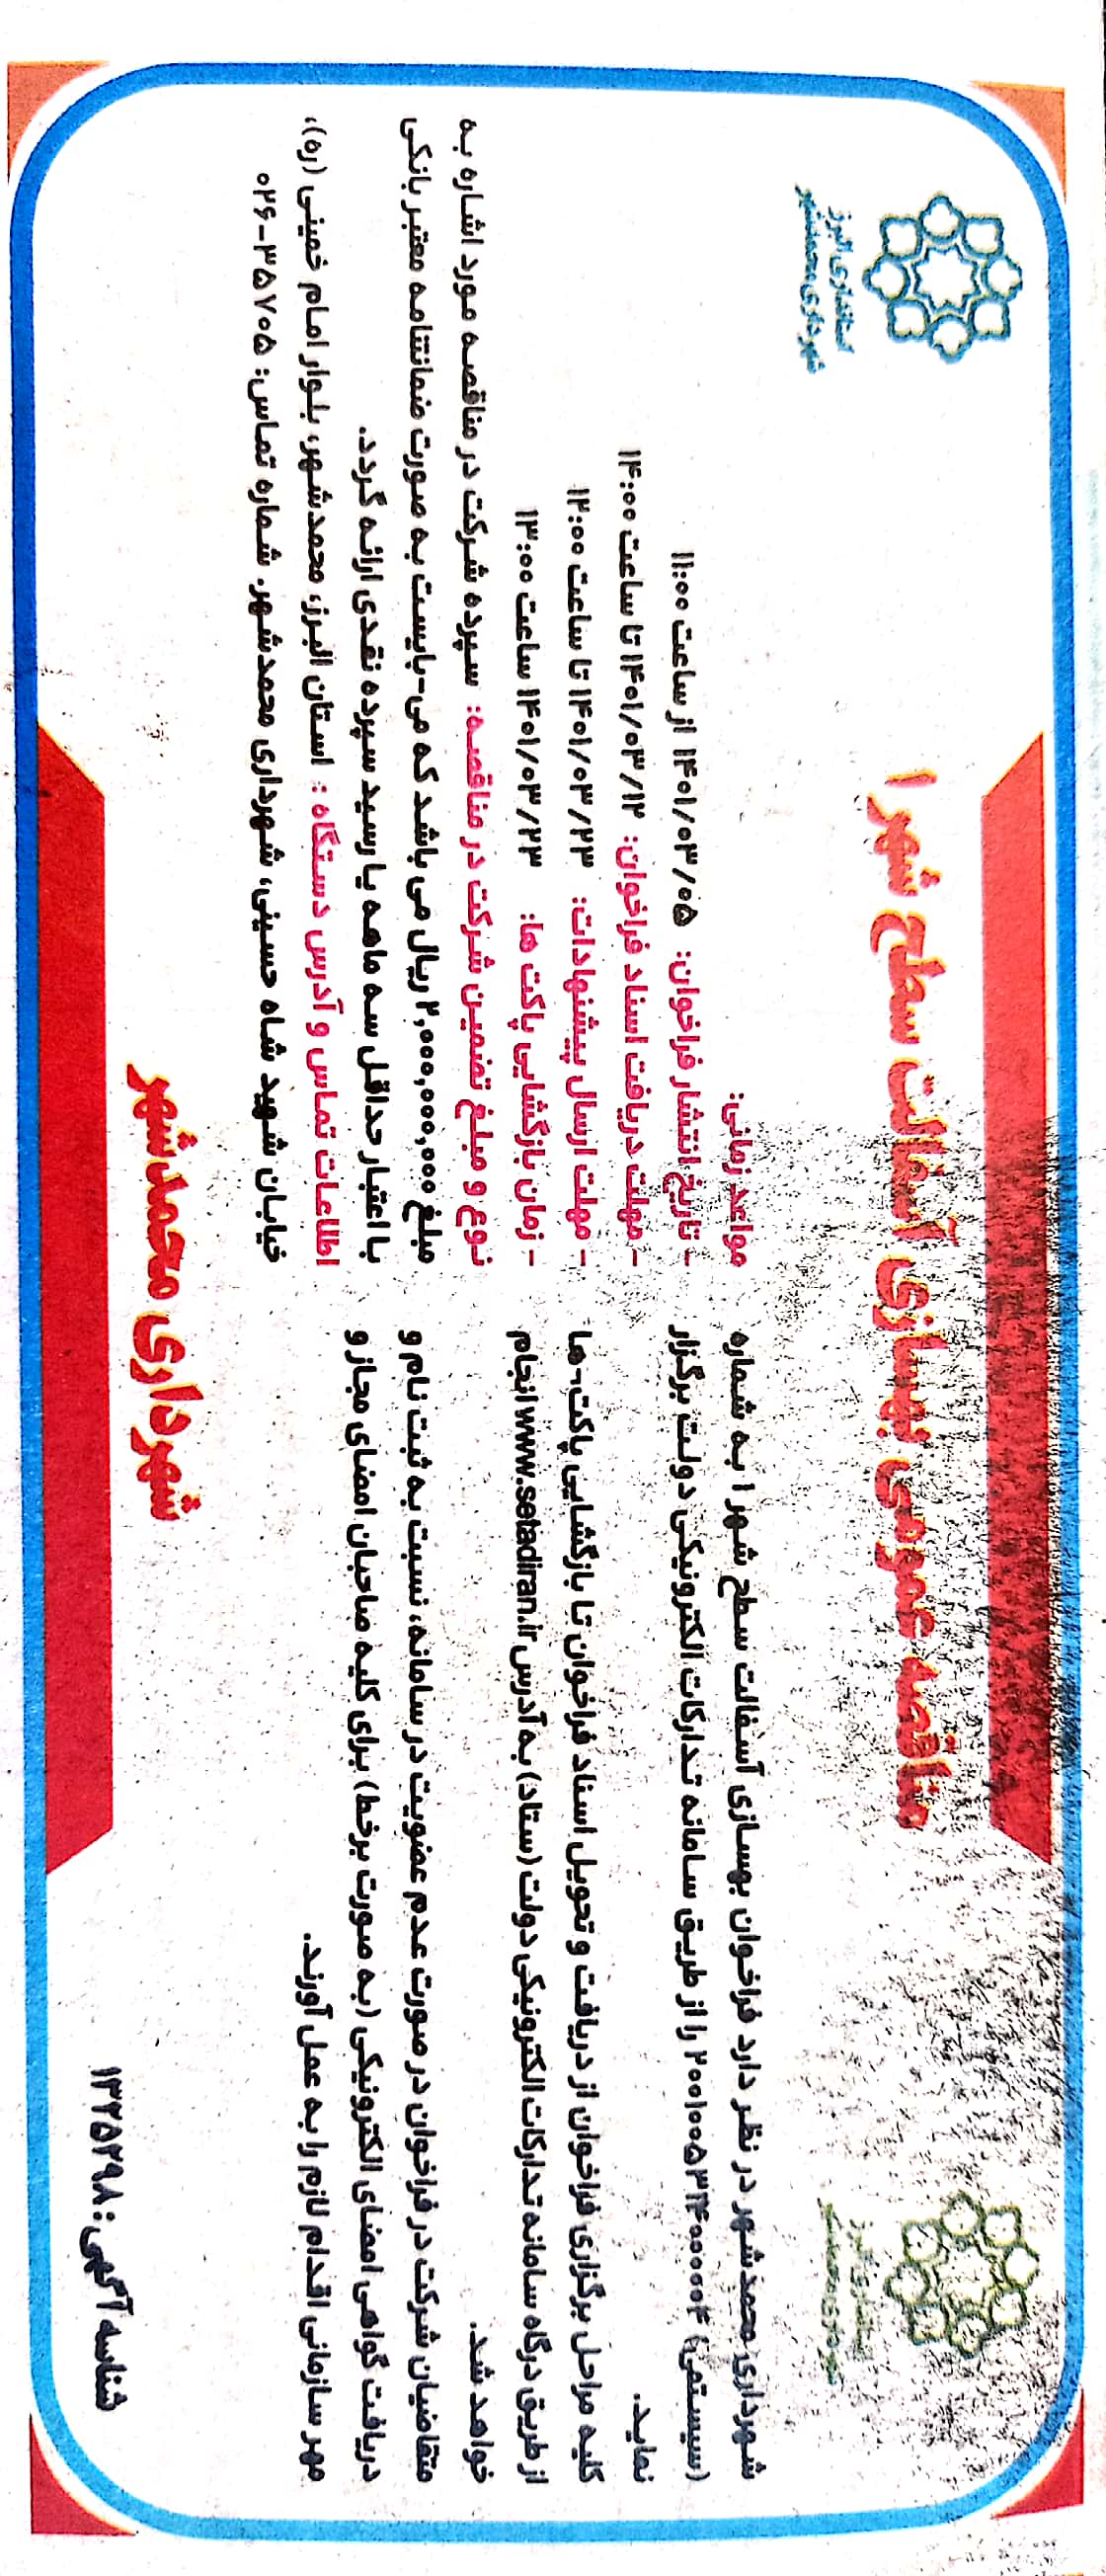 مناقصه عمومی بهسازی آسفالت سطح شهر ۱
استانداری البرز
شهرداری محمدشهر
شهرداری محمدشهر در نظر دارد فراخوان بهسازی آسفالت سطح شهر ۱ به شماره
(سیستمی) ۲۰۰۱۰۰۵۳۲۴۰۰۰۰۰۴ را از طریق سامانه تدارکات الکترونیکی دولت برگزار
نماید.
کلیه مراحل برگزاری فراخوان از دریافت و تحویل اسناد فراخوان تا بازگشایی پاکت-ها
از طریق درگاه سامانه تدارکات الکترونیکی دولت (ستاد) به آدرس www.setadiran.ir انجام
خواهد شد.
متقاضیان شرکت در فراخوان در صورت عدم عضویت در سامانه، نسبت به ثبت نام و
دریافت گواهی امضای الکترونیکی (به صورت برخط) برای کلیه صاحبان امضای مجاز و
مهر سازمانی اقدام لازم را به عمل آورند.
مواعد زمانی:
- تاریخ انتشار فراخوان: ۱۴۰۱/۰۳/۰۵ از ساعت ۱۱:۰۰
- مهلت دریافت اسناد فراخوان: ۱۴۰۱/۰۳/۱۲ تا ساعت ۱۴:۰۰
- مهلت ارسال پیشنهادات: ۱۴۰۱/۰۳/۲۳ تا ساعت ۱۲:۰۰
- زمان بازگشایی پاکت ها: ۱۴۰۱/۰۳/۲۳ ساعت ۱۳:۰۰
نوع و مبلغ تضمین شرکت در مناقصه: سپرده شرکت در مناقصه مورد اشاره به
مبلغ ۲,۰۰۰,۰۰۰,۰۰۰ ریال می باشد که می-بایست به صورت ضمانتنامه معتبر بانکی
با اعتبار حداقل سه ماهه یا رسید سپرده نقدی ارائه گردد.
اطلاعات تماس و آدرس دستگاه : استان البرز، محمدشهر، بلوار امام خمینی (ره)،
خیابان شهید شاه حسینی، شهرداری محمدشهر. شماره تماس: ۳۵۷۰۵-۰۲۶
شهرداری محمدشهر
شناسه آگهی: ۱۳۲۵۲۹۸